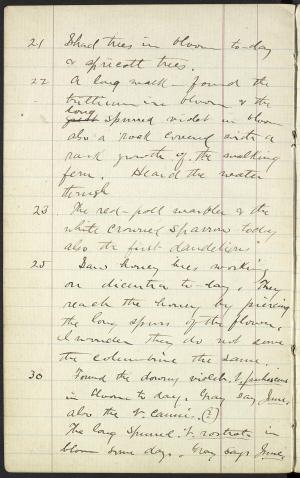 21 Shad trees in bloom to-day
& apricott trees.
22 A long walk - found the
trillium in bloom & the
long
spurred violet in bloom
also a rock covered with a
rank growth of the walking
fern. Heard the water
thrush
23 The red-poll warbler & the
white crowned sparrow today
also the first dandelion
25 Saw honey bees working
on dicentra to-day. They
reach the honey by piercing
the long spurs of the flower,
I wonder they do not serve
the columbine the same.
30 Found the downy violet V. pubescens
in bloom to day. Gray say June,
also the V. canina. (?)
The long spurred V. rostrata in
bloom some days. Gray says June,